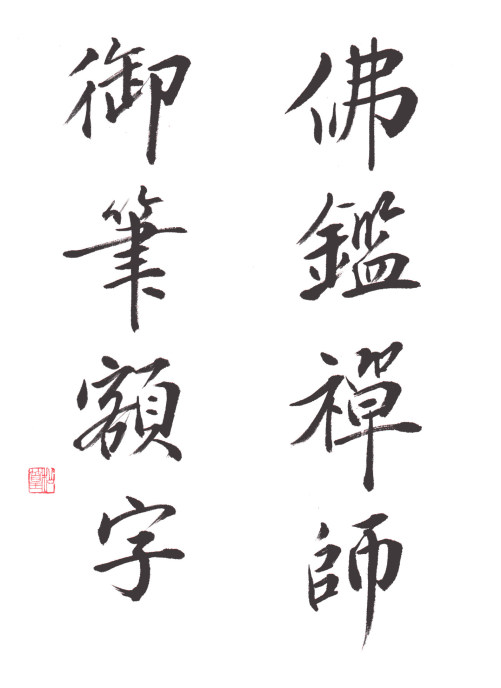 佛鑑禪師
御筆額字